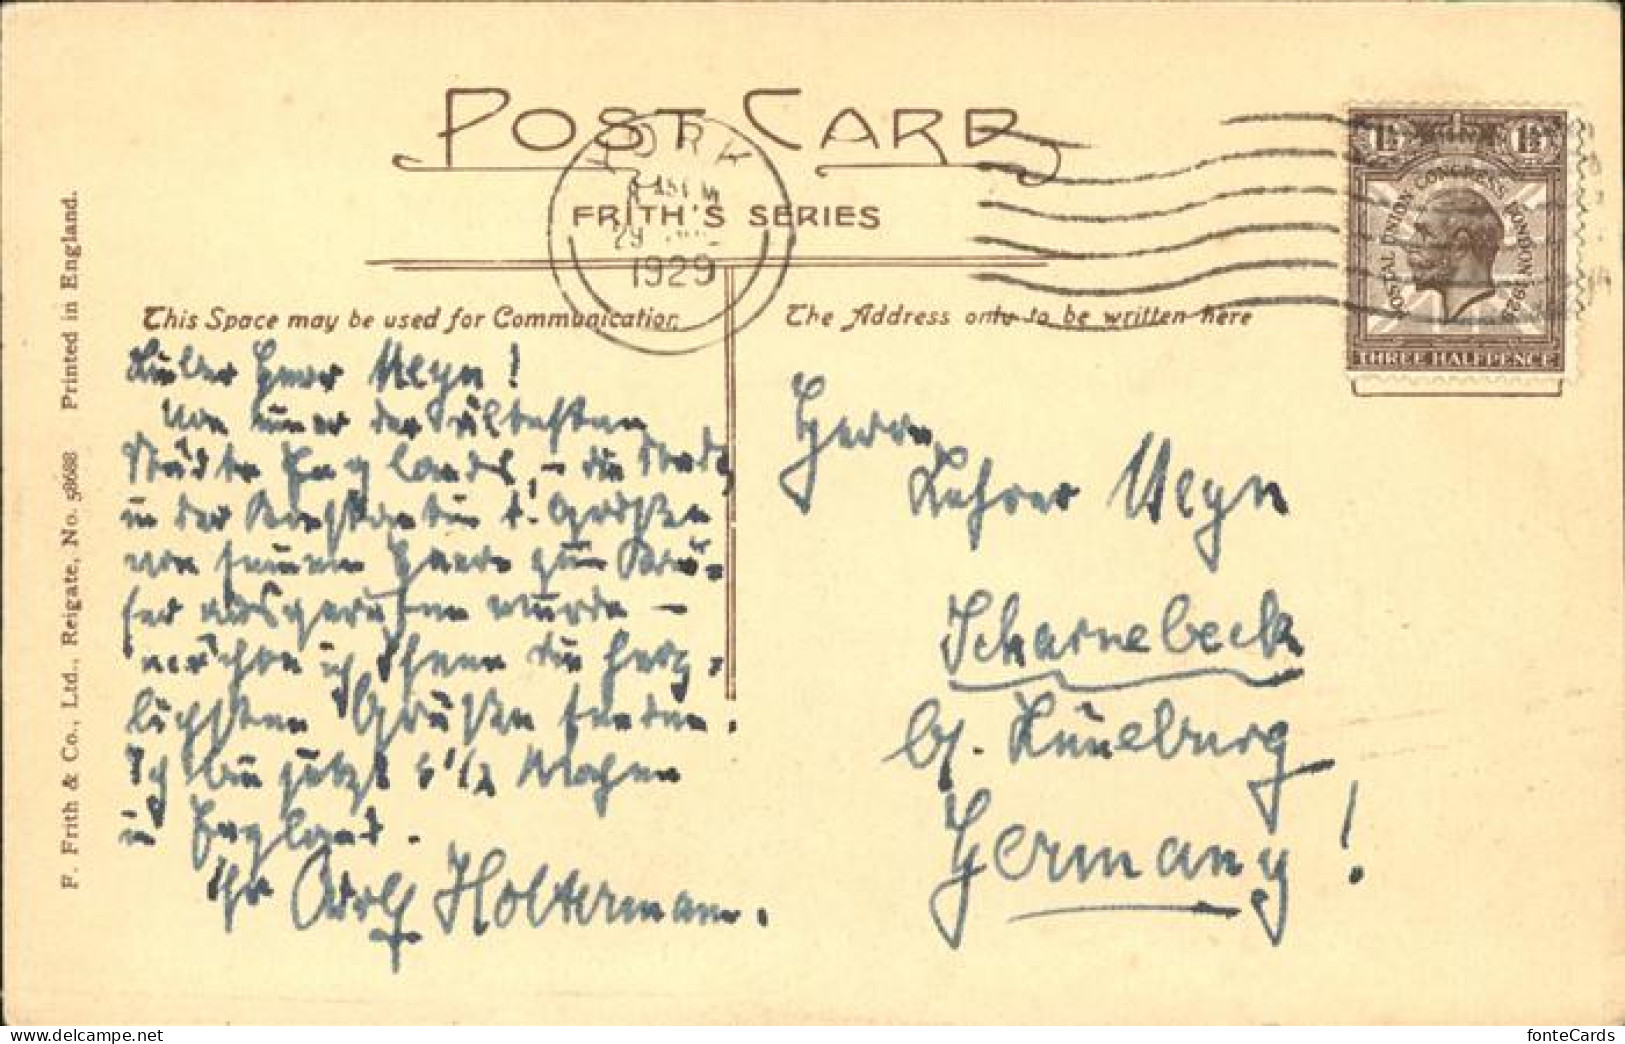 POST CARD
FRITH'S SERIES
YORK
1929
POSTAL UNION CONGRESS LONDON 1929
1½ 1½
THREE HALFPENCE
This Space may be used for Communication
The Address only to be written here
Lieber Herr Meyn!
Von einer der ältesten
Städte Englands – die Stadt,
in der Konstantin d. Großen
von seinem Heere zum Kai-
ser ausgerufen wurde –
möchte ich Ihnen die herz-
lichsten Grüße senden.
Ich bin jetzt 6 1/2 Wochen
in England.
Ihr Adolf Holtermann.
Herrn
Lehrer Meyn
Scharnebeck
b/. Lüneburg
Germany!
F. Frith & Co., Ltd., Reigate, No. 58688 Printed in England.
fonteCards